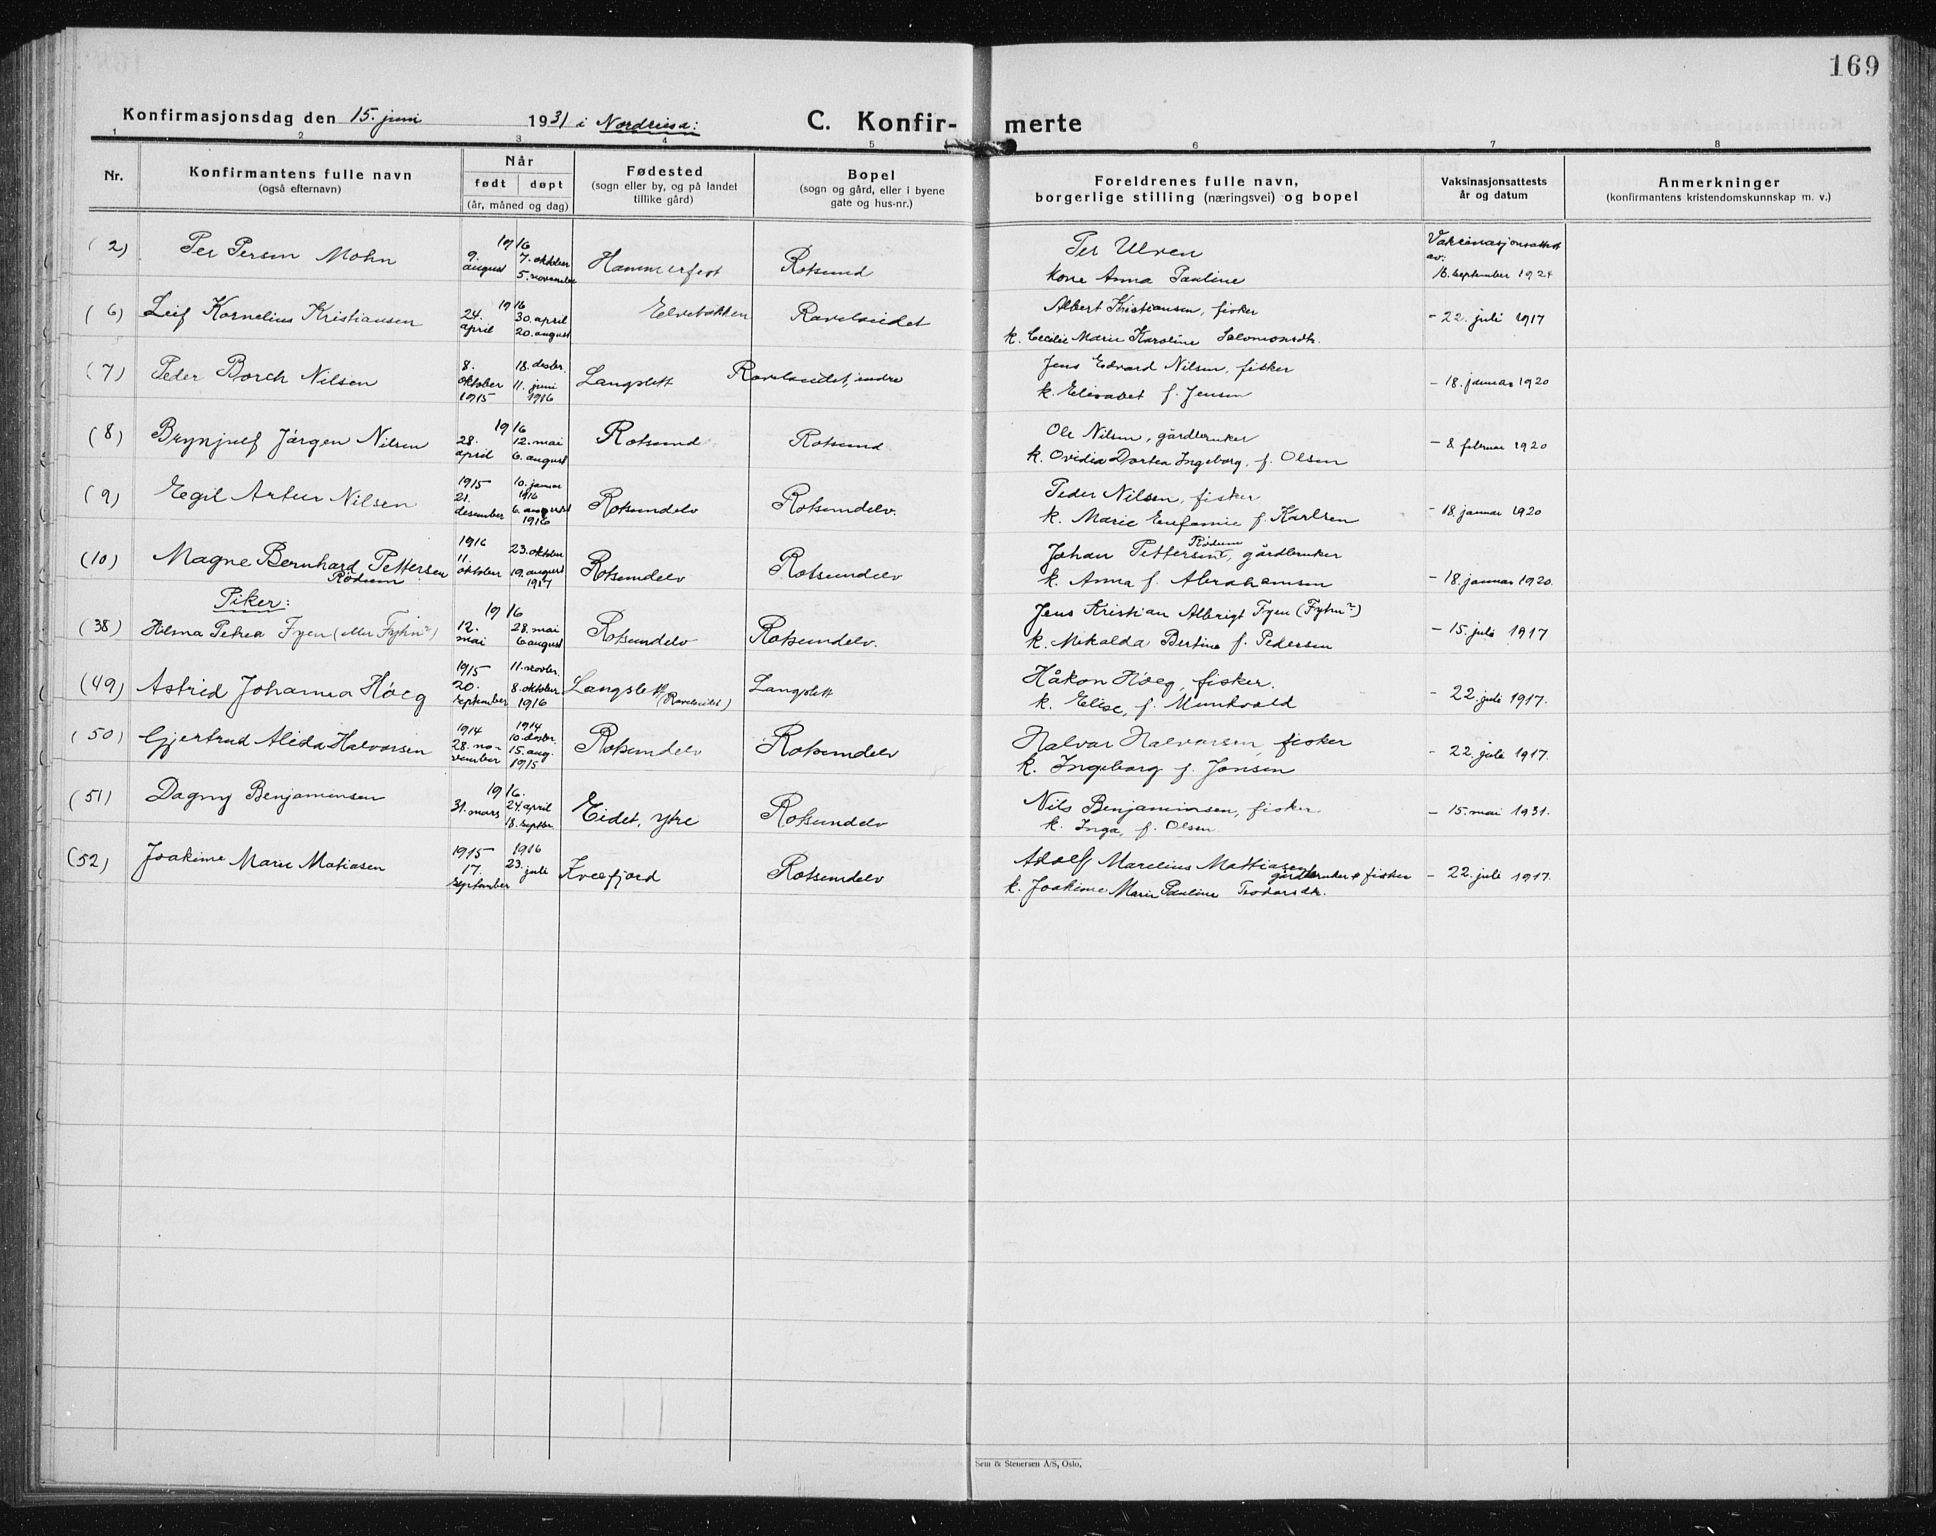 169
Konfirmasjonsdag den 15. juni 1931 i Nordreisa:
C. Konfir- merte
1 2 3 4 5 6 7 8
Nr.
Konfirmantens fulle navn
(også efternavn)
Når
født døpt
(år, måned og dag)
Fødested
(sogn eller by, og på landet
tillike gård)
Bopel
(sogn og gård, eller i byene
gate og hus-nr.)
Foreldrenes fulle navn,
borgerlige stilling (næringsvei) og bopel
Vaksinasjonsattests
år og datum
Anmerkninger
(konfirmantens kristendomskunnskap m. v.)
(2) Per Persen Mohn 1916 9. august 7. oktober 5. november Hammerfest Rotsund Per Ulven
kone Anna Pauline Vaksinasjonsattest av: 18. september 1924
(6) Leif Kornelius Kristiansen 1916 24. april 30. april 20. august Elvebakken Raveleidet Albert Kristiansen, fisker
k. Cecilie Marie Karoline Salomonsdtr. - 22. juli 1917
(7) Peder Borch Nilsen 8. oktober 1915 18. desbr. 11. juni 1916 Langslett Raveleidet, indre Jens Edvard Nilsen, fisker
k. Elisabet f. Jensen - 18. januar 1920
(8) Brynjulf Jørgen Nilsen 1916 28. april 12. mai 6. august Rotsund Rotsund Ole Nilsen, gårdbruker
k. Ovidia Dortea Ingeborg, f. Olsen - 8 februar 1920
(9) Egil Artur Nilsen 1915 21. desember 10. januar 1916 6. august 1916 Rotsundelv Rotsundelv. Peder Nilsen, fisker
k. Marie Eufamie f. Karlsen - 18. januar 1920
(10) Magne Bernhard Pettersen Rødsum 1916 11. oktober 23. oktober 19. august 1917 Rotsundelv Rotsundelv Johan Pettersen Rødum, gårdbruker
k. Anna f. Abrahamsen - 18. januar 1920.
Piker:
(38) Helma Petrea Fyen (eller Fyhn?) 1916 12. mai 28. mai 6 august Rotsundelv Rotsundelv. Jens Kristian Albrigt Fyen (Fyhn?)
k. Mekalda Bertine f. Pedersen - 15. juli 1917
(49) Astrid Johanna Høeg 1915 20. september 11. novbr. 8. oktober 1916 Langslett (Raveleidet) Langslett Håkon Høeg, fisker.
k. Elise, f. Munkvold - 22. juli 1917.
(50) Gjertrud Alida Halvorsen 1914 28. november 1914 10. desbr. 15. aug. 1915 Rotsundelv Rotsundelv Halvar Halvorsen fisker
k. Ingeborg f. Jensen - 22. juli 1917.
(51) Dagny Benjaminsen 1916. 31. mars 24. april 18. septbr. Eidet, ytre Rotsundelv Nils Benjaminsen, fisker
k. Inga, f. Olsen. - 15. mai 1931.
(52) Joakime Marie Matiasen 1915 17. september 1916 23. juli Kvefjord Rotsundelv Adolf Marelius Mattiasen gårdbruker & fisker
k. Joakime Marie Pauline Teodorsdtr. - 22. juli 1917.
Sem & Stenersen A/S, Oslo.